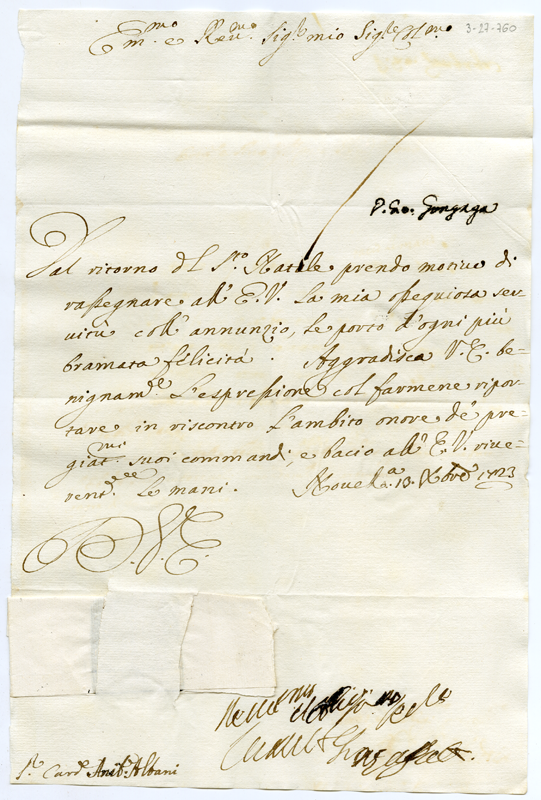 Em.mo e Rev.mo Sig.r mio Sig.re Col.mo
3-27-760
P. Gio. Gonzaga
Dal ritorno del S.to Natale prendo motivo di
rassegnare all' E.V. la mia ossequiosa ser-
uitù coll' annunzio, le porto d'ogni più
bramata felicità. Aggradisca V.E. be-
nignam.te l'espressione col farmene ripor-
tare in riscontro l'ambito onore de' pre-
giat.mi suoi commandi, e bacio all' E.V. riue-
rent.e le mani. Nouell.a 13. Xbre 1723
D. V. E.
P.r Card. Anib.e Albani